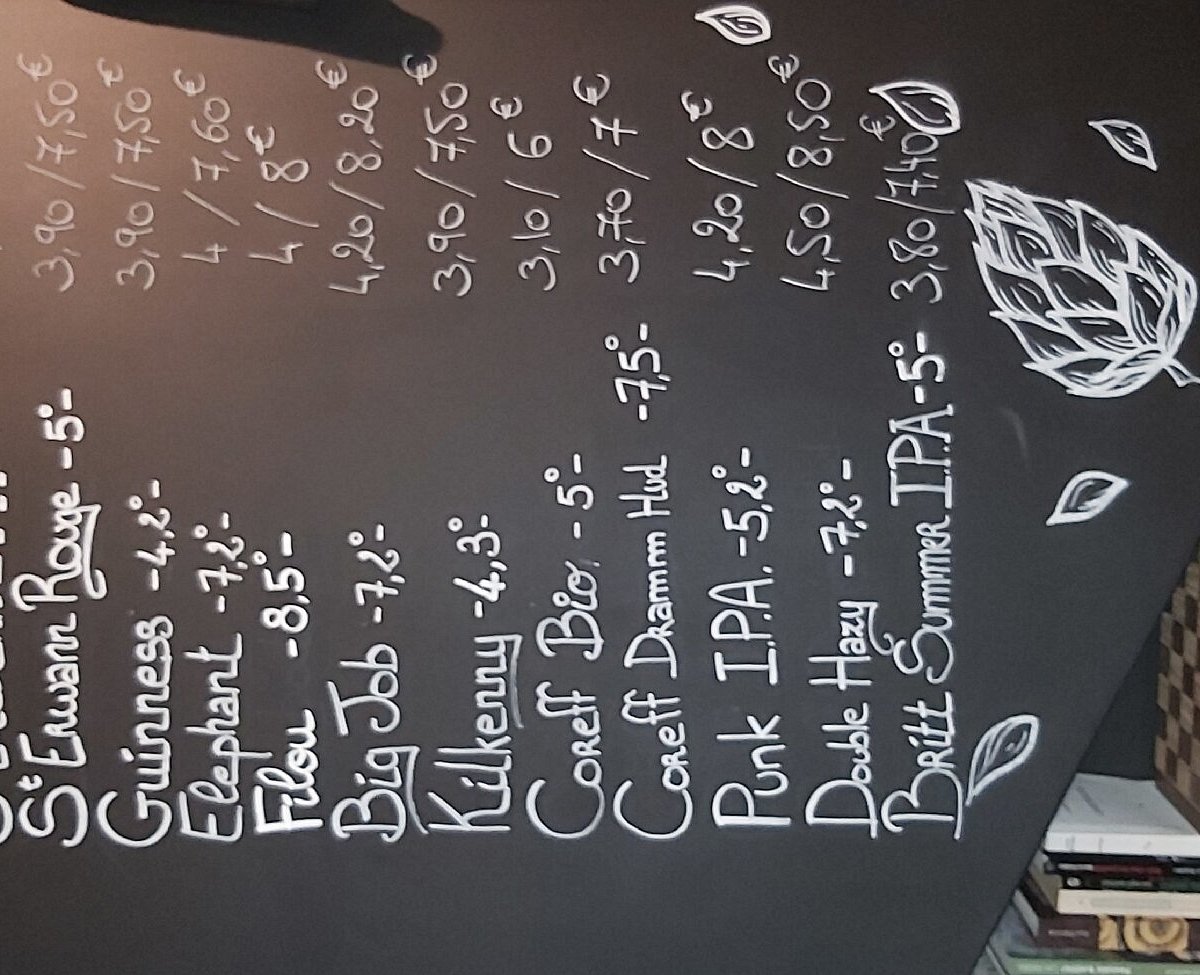 St ERWANN ROUGE -5°- 3,90 / 7,50€
GUINNESS -4,2°- 3,90 / 7,50€
Elephant -7,2°- 4 / 7,60€
Filou -8,5°- 4 / 8€
Big Job -7,2°- 4,20 / 8,20€
Kilkenny -4,3°- 3,90 / 7,50€
COREFF BIO. -5°- 3,10 / 6€
COREFF DRAMM HUD -7,5°- 3,70 / 7€
PUNK I.P.A. -5,2°- 4,20 / 8€
DOUBLE HAZY -7,2°- 4,50 / 8,50€
BRITT SUMMER I.P.A -5°- 3,80 / 7,40€